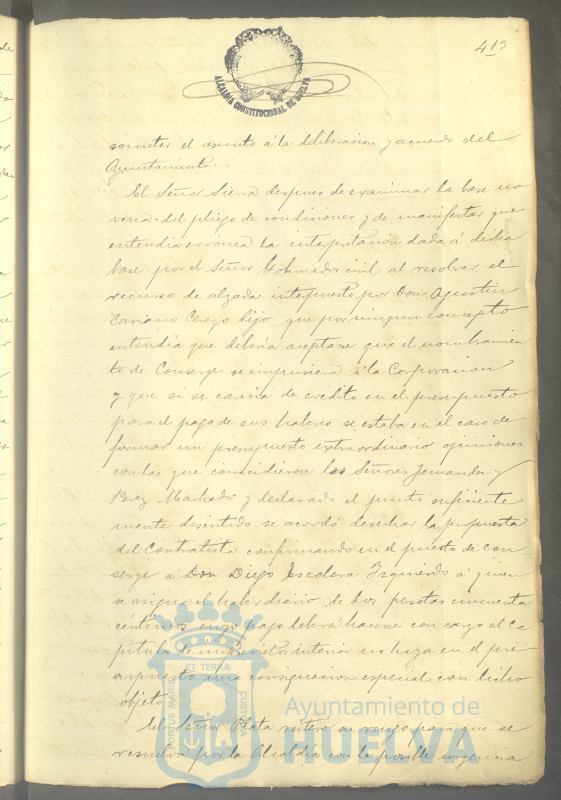 413
ALCALDIA CONSTITUCIONAL DE HUELVA
someter el asunto á la deliberacion y acuerdo del
Ayuntamiento.
El Señor Sierra despues de examinar la base no
vena del pliego de condiciones y de manifestar que
entendia errónea la interpretacion dada á dicha
base por el Señor Gobernador civil al resolver el
recurso de alzada interpuesto por Don Agustin
Cariano Cerezo hijo, que por ningun concepto
entendia que deberia aceptarse que el nombramien
to de Conserge se impusiera á la Corporacion
y que si se carecia de crédito en el presupuesto
para el pago de sus haberes se estaba en el caso de
formar un presupuesto extraordinario opiniones
con las que coincidieron los Señores Fernandez y
Perez Machado y declarado el punto suficiente
mente discutido se acordó desechar la propuesta
del Contratista confirmando en el puesto de con
serge á Don Diego Escalera Izquierdo á quien
se asigna el haber diario de dos pesetas cincuenta
centimos cuyo pago deberá hacerse con cargo al Ca
pitulo de imprevistos interin no haya en el pre
supuesto una consignacion especial con dicho
objeto.
El Señor Plata reiteró su ruego para que se
resuelva por la Alcaldía con la posible urgencia
PORTUS MARIS ET TERRAE CUSTODIA
Ayuntamiento de
HUELVA